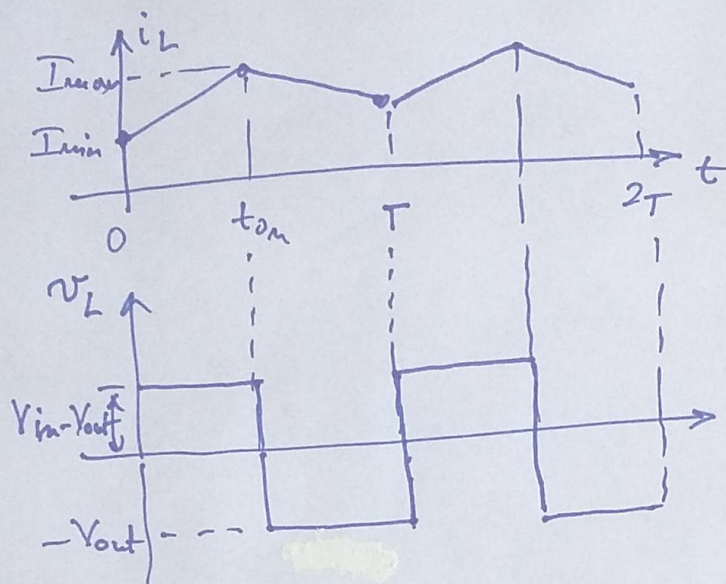 iL
Imax
Imin
t
0
ton
T
2T
vL
Vin-Vout
-Vout